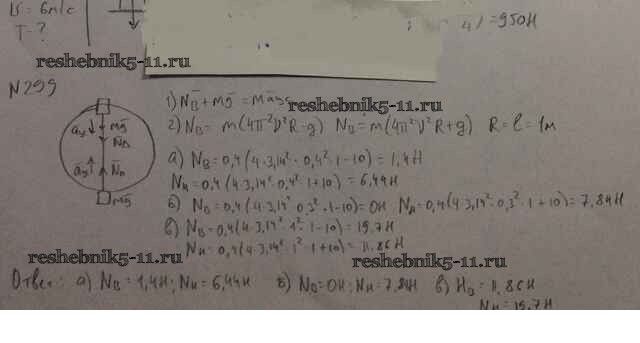 V = 6м/с
T - ?
= 950Н
reshebnik5-11.ru
N299
1) N̄в + mḡ = māуc
reshebnik5-11.ru
2) Nв = m(4π²ν²R - g) Nв = m(4π²ν²R + g) R = l = 1м
aу mḡ N̄в
а) Nв = 0,4(4·3,14²·0,4²·1-10) = 1,4Н
āу N̄н
Nн = 0,4(4·3,14²·0,4²·1+10) = 6,44Н
mḡ
б) Nв = 0,4(4·3,14²·0,3²·1-10) = 0Н Nн = 0,4(4·3,14²·0,3²·1+10) = 7,84Н
в) Nв = 0,4(4·3,14²·1²·1-10) = 19,7Н
Nн = 0,4(4·3,14²·1²·1+10) = 11,86Н
reshebnik5-11.ru reshebnik5-11.ru
Ответ: а) Nв = 1,4Н; Nн = 6,44Н б) Nв = 0Н; Nн = 7,84Н в) Hв = 11,86Н
Nн = 19,7Н